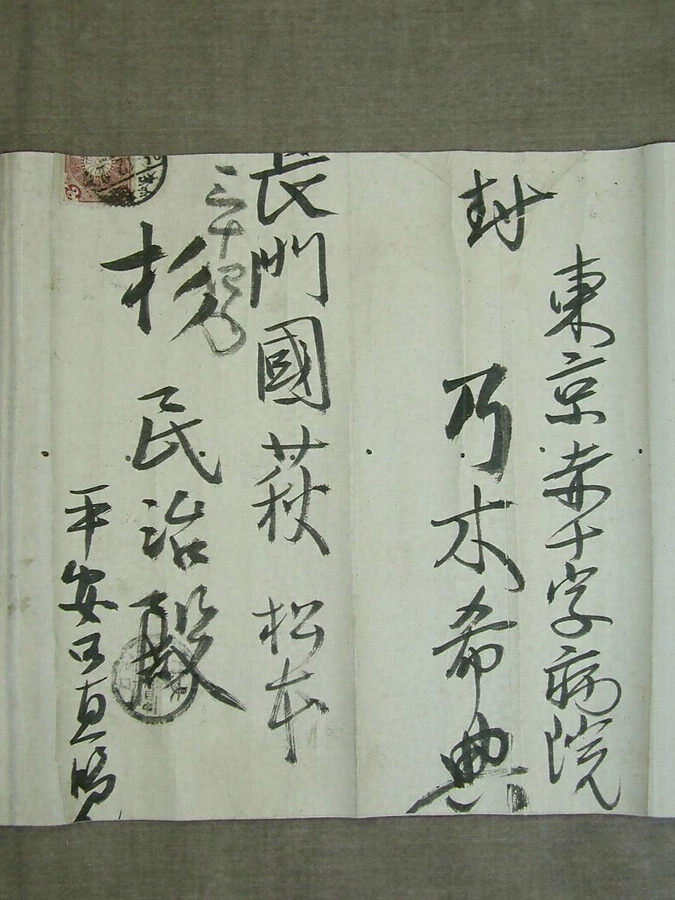 東京赤十字病院
封
乃木希典
長門國萩 松本
三十四
杉 民治殿
平安